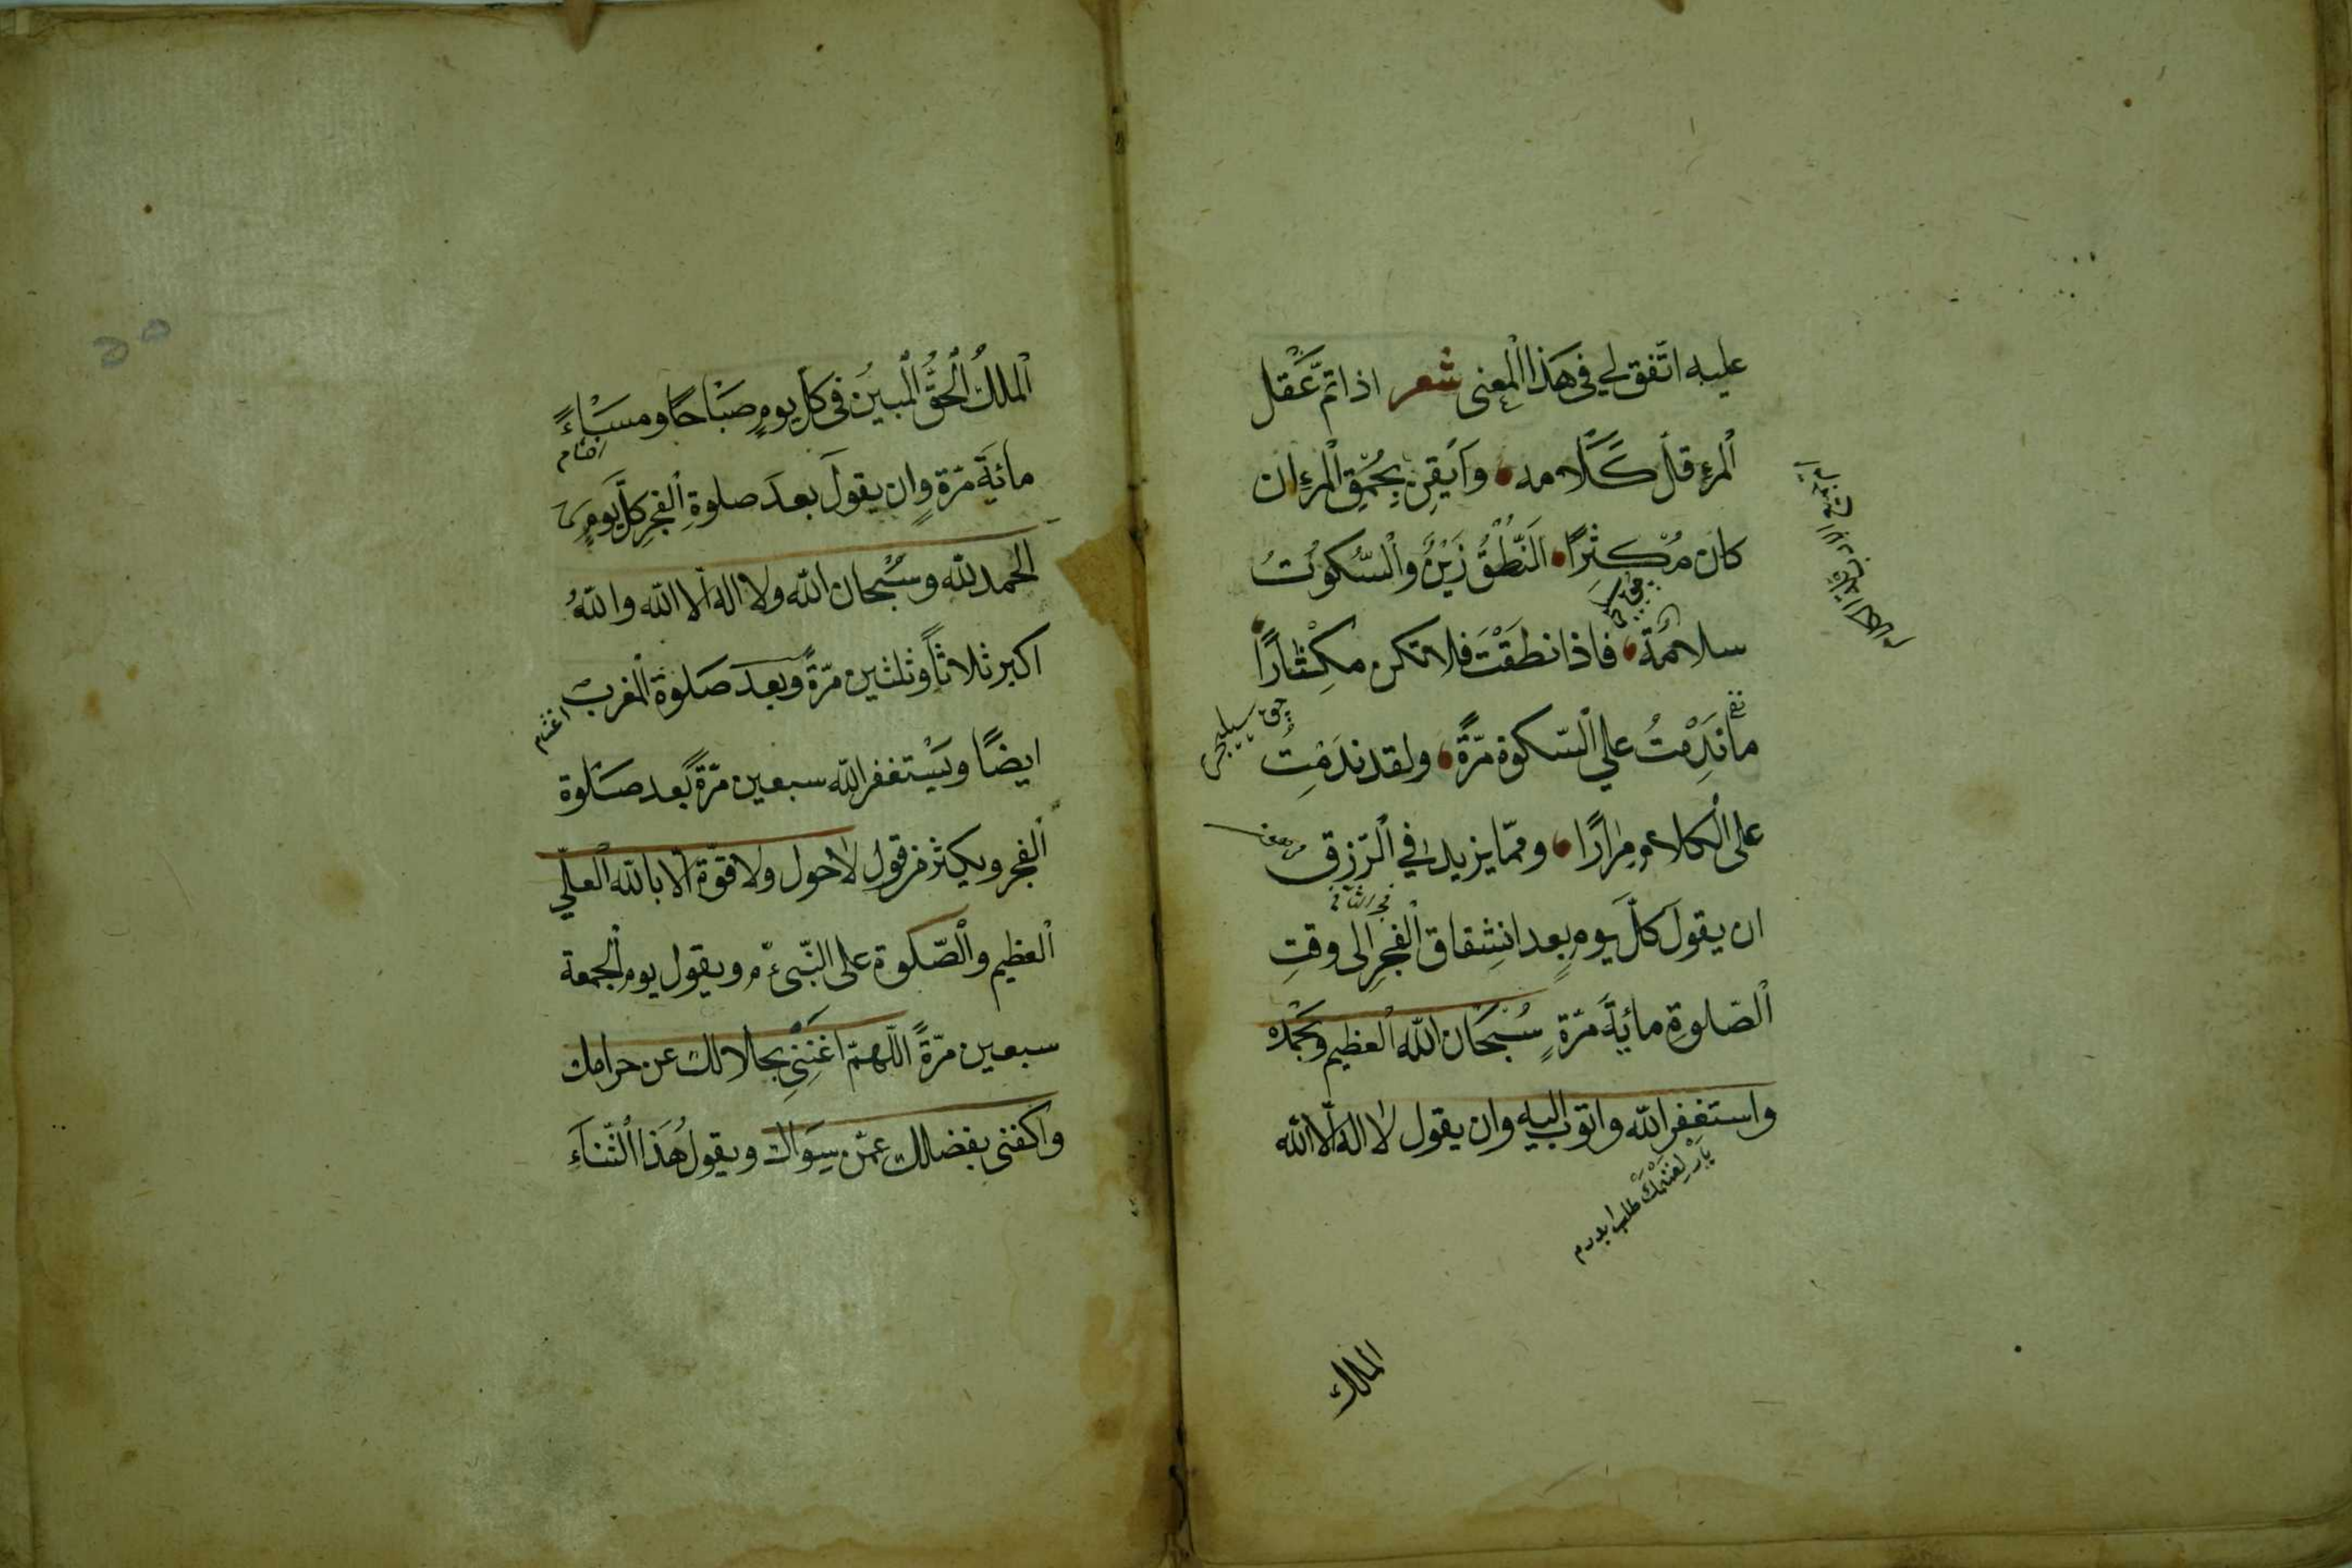 عليه اتّفق لي في هَذا الْمعنى شعر اذا تمّ عَقْل
الْمرءِ قلّ كَلَامه وَاَيْقِن بِحُمْقِ الْمرْءِ ان
كان مُكثِرًا اَلنُّطْقُ زَيْنٌ وَالْسّكُوْتُ
سلامَة فاذا نطَقْتَ فلا تكن مكِثْارًا
ما نَدِمْتُ علي الْسّكوة مّرَّةً ولقد ندَمْتُ
على الْكلام مِرارًا وممّا يزيد في الْرّزق
ان يقولَ كلَّ يومٍ بعد انشِقاق الْفجرِ الى وقتِ
الْصّلوةِ مائةَ مرّةٍ سُبْحَان اللّه الْعظيم وبحَمْدْه
واستغفر اللّه واتوب اليه وان يقول لا اله الّا اللّه
يارلغنمك طلب ايدرم
الملك
الْملكُ الْحَقُّ الْمبينُ في كلّ يومٍ صبَاحًا ومسَاءً
مائَةَ مرّةٍ وان يقولَ بعدَ صلوةِ الْفجرِ كلَّ يَومٍ
الحمد للّه وسُبْحان اللّه ولا اله الّا اللّه واللّهُ
اكبر ثلاثاً وثلثين مرّةً وبعدَ صَلوٰة الْمغرب
اغتنام
ايضًا ويَسْتغفر اللّه سبعين مرّةً بعد صَلَوة
الْفجر ويكثر من قول لا حول ولا قوّة الّا باللّه الْعليّ
الْعظيم والْصّلوة على النّبيّ م ويقول يوم الجمعة
سبعين مرّةً اللّهمّ اغَنِنِي بحلالك عن حرامك
واكفنى بفضلك عمّن سِوَاك ويقول هَذا الْثّنَاءَ